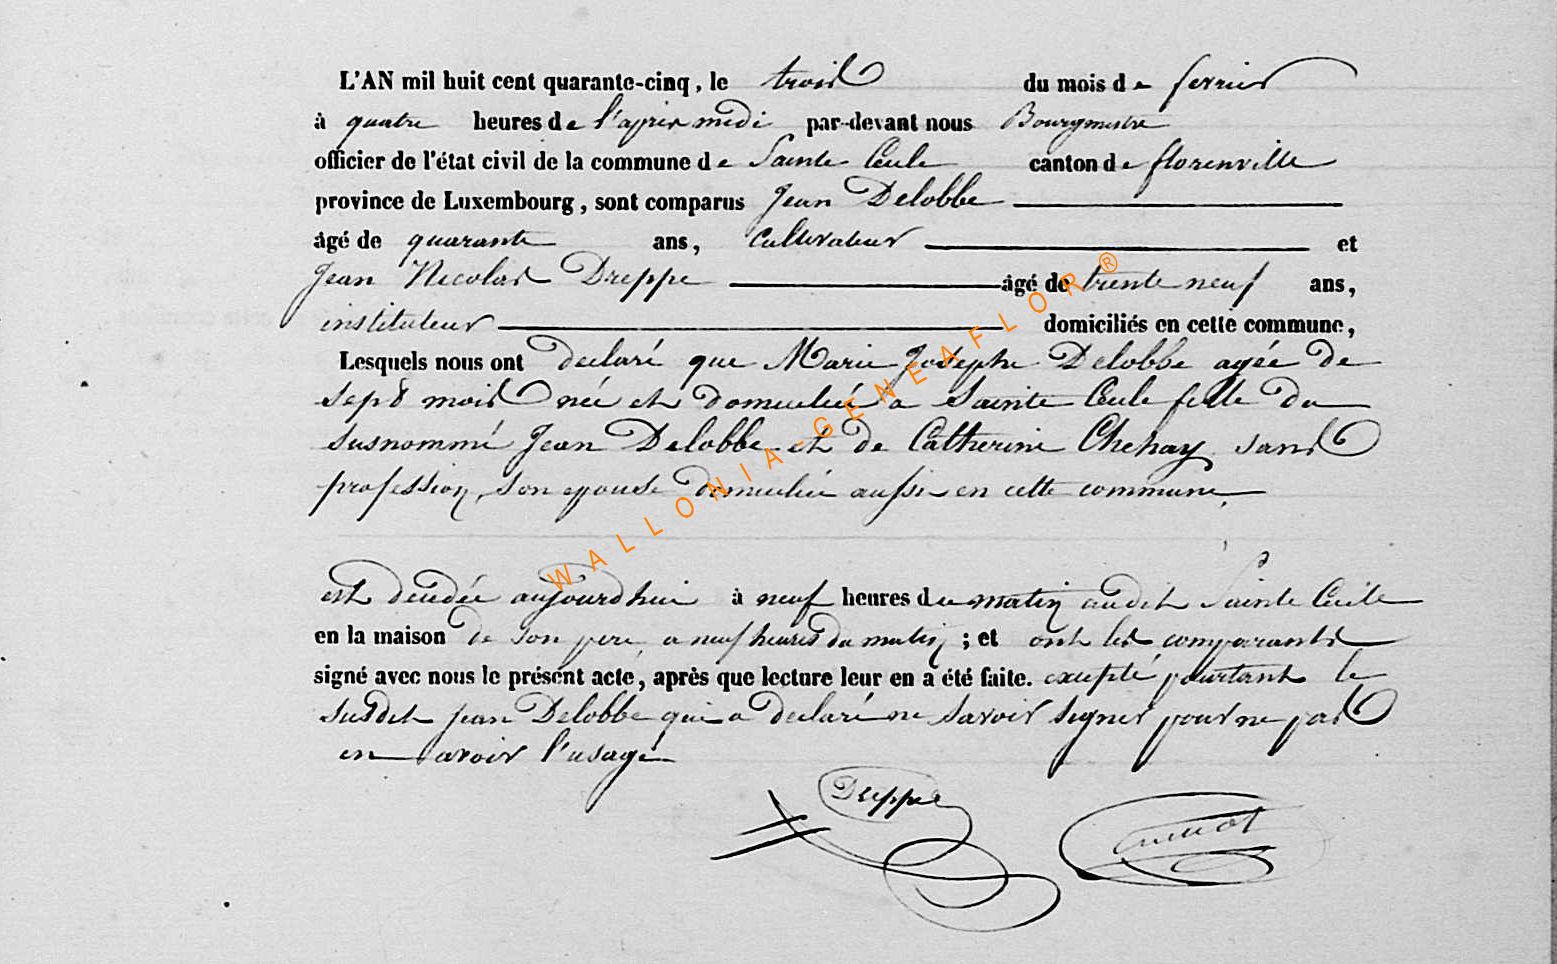 L'AN mil huit cent quarante-cinq, le trois du mois de fevrier
à quatre heures de l'apres midi par-devant nous Bourgmestre
officier de l'état civil de la commune de Sainte Cecile canton de florenville
province de Luxembourg, sont comparus Jean Delobbe
âgé de quarante ans, Cultivateur et
Jean Nicolas Dreppe âgé de trente neuf ans,
instituteur domiciliés en cette commune,
Lesquels nous ont declaré que Marie Josephe Delobbe agée de
sept mois née et domiciliée a Sainte Cecile fille du
susnommé Jean Delobbe et de Catherine Chenay sans
profession, son epouse domiciliée aussi en cette commune,
est decedée aujourdhui à neuf heures du matin audit Sainte Cecile
en la maison de son pere, a neuf heures du matin ; et ont les comparants
signé avec nous le présent acte, après que lecture leur en a été faite. excepté pourtant le
susdit Jean Delobbe qui a declaré ne savoir signer pour ne pas
en avoir l'usage
Dreppe
WALLONIA-GENEAFLOR®